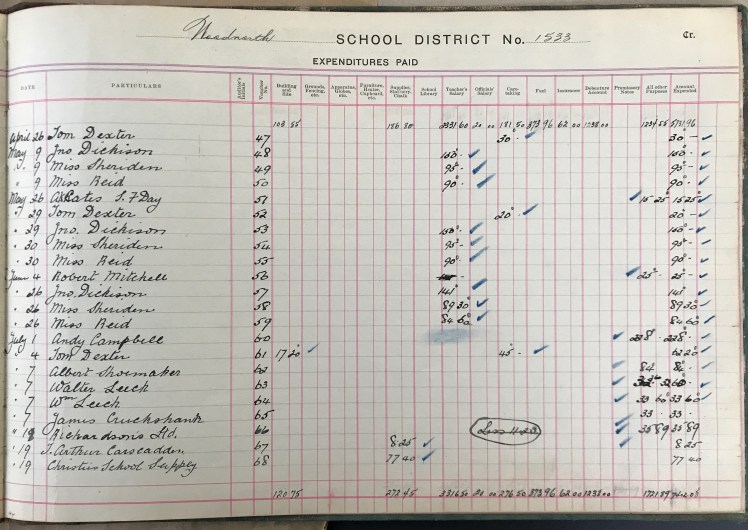 Woodnorth SCHOOL DISTRICT No. 1533 Cr.
EXPENDITURES PAID
DATE PARTICULARS Auditor's Initials Voucher No. Building and Site Grounds, Fencing, etc. Apparatus, Globes, etc. Furniture, Heater, Cupboard, etc. Supplies, Stat'nery, Chalk School Library Teacher's Salary Officials' Salary Care-taking Fuel Insurance Debenture Account Promissory Notes All other Purposes Amount Expended
103 55 186 80 2331 60 20 00 181 50 873 96 62 00 1238 00 1234 55
April 26 Tom Dexter 47 30 - 30 -
May 9 Jno. Dickison 48 150 - 150 -
" 9 Miss Sheriden 49 95 - 95 -
" 9 Miss Reid 50 90 - 90 -
May 26 S.F Day 51 15 25 15 25
" 29 Tom Dexter 52 20 - 20 -
" 29 Jno. Dickison 53 150 - 150 -
" 30 Miss Sheriden 54 95 - 95 -
" 30 Miss Reid 55 90 - 90 -
June 4 Robert Mitchell 56 25 - 25 -
" 26 Jno. Dickison 57 141 - 141 -
" 26 Miss Sheriden 58 89 30 89 30
" 26 Miss Reid 59 84 60 84 60
July 1 Andy Campbell 60 228 - 228 -
" 4 Tom Dexter 61 17 20 45 - 62 20
" 7 Albert Shoemaker 62 84 - 84 -
" 7 Walter Leeck 63
" 7 Wm Leeck 64 33 60 33 60
" 7 James Cruckshank 65 33 - 33 -
" 19 Richardsons Ltd. 66 Less 11 23 35 89 35 89
" 19 J. Arthur Carscadden 67 8 25 8 25
" 19 Christies School Supply 68 77 40 77 40
120 75 272 45 3316 50 20 00 276 50 873 96 62 00 1238 00 1721 89